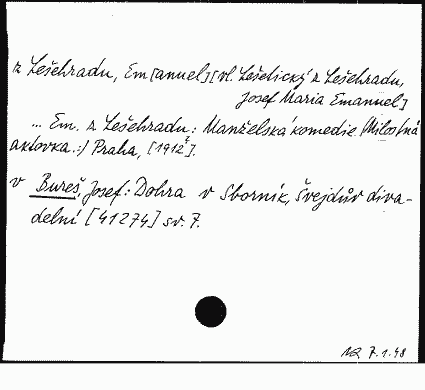 z Lešehradu, Em[anuel] [vl. Lešetický z Lešehradu,
Josef Maria Emanuel]
... Em. z Lešehradu: Manželská komedie. (Milostná
aktovka.:) Praha, [1912?].
v Bureš, Josef: Dohra v Sborník, Švejdův diva-
delní [41274] sv. 7.
7.1.48